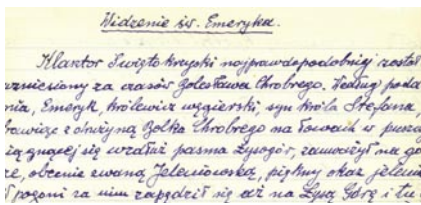 Widzenie św. Emeryka.
Klasztor Świętokrzyski najprawdopodobniej został
wzniesiony za czasów Bolesława Chrobrego. Według poda
nia, Emeryk, królewicz węgierski, syn króla Stefana,
bawiąc z drużyną Bolka Chrobrego na łowach w puszczy
ciągnącej się wzdłuż pasma Łysogór, zauważył na gó
rze, obecnie zwaną Jeleniowską, piękny okaz jelenia
W pogoni za nim zapędził się aż na Łysą Górę i tu